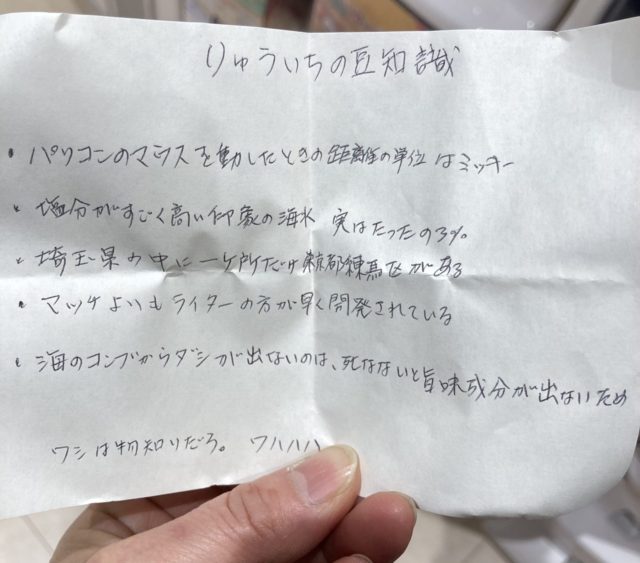 りゅういちの豆知識
・パソコンのマウスを動かしたときの距離の単位はミッキー
・塩分がすごく高い印象の海水 実はたったの3%。
・埼玉県の中に一ケ所だけ東京都練馬区がある
・マッチよりもライターの方が早く開発されている
・海のコンブからダシが出ないのは、死なないと旨味成分が出ないため
ワシは物知りだろ。 ワハハハ